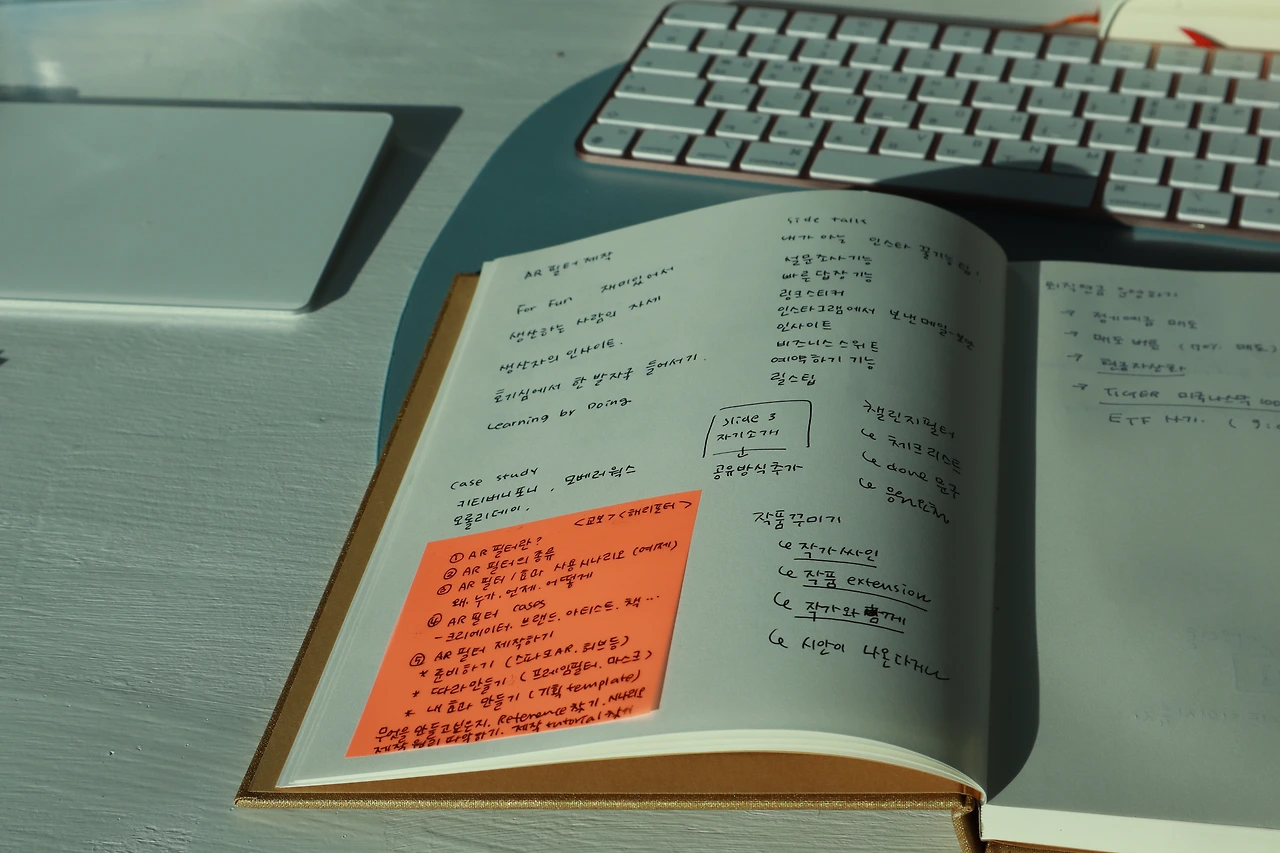 AR 필터 제작
For Fun 재미있어서
생산하는 사람의 자세
생산자의 인사이트.
호기심에서 한 발자국 들어서기.
Learning by Doing
case study
키티버니포니, 모베러웍스
오롤리데이.
<교보><해리포터>
① AR 필터란?
② AR 필터의 종류
③ AR 필터/효과 사용 시나리오 (예제)
왜. 누가. 언제. 어떻게
④ AR 필터 cases
- 크리에이터. 브랜드. 아티스트. 책...
⑤ AR 필터 제작하기
* 준비하기 (스파크AR. 튜브등)
* 따라만들기 (프레임필터. 마스크)
* 내 효과 만들기 (기획 template)
무엇을 만들고싶은지. Reference 찾기. 시나리오
제작 원리 파악하기. 제작 tutorial 찾기
side talk
내가 아는 인스타 꿀기능 팁!
설문조사 기능
빠른답장 기능
링크스티커
인스타그램에서 보낸메일
인사이트
비즈니스스위트
예약하기 기능
릴스팁
slide 3
자기소개
공유방식추가
챌린지필터
↳ 체크리스트
↳ done 문구
↳ 응원
작품꾸미기
↳ 작가싸인
↳ 작품 extension
↳ 작가와 함께
↳ 시안이 나온다거나
퇴직연금 운영하기
→ 정기예금 매도
→ 매도 버튼 ( 매도)
→ 현금자산화
→ TIGER 미국나스닥 100
ETF 사기. (9:
command
command